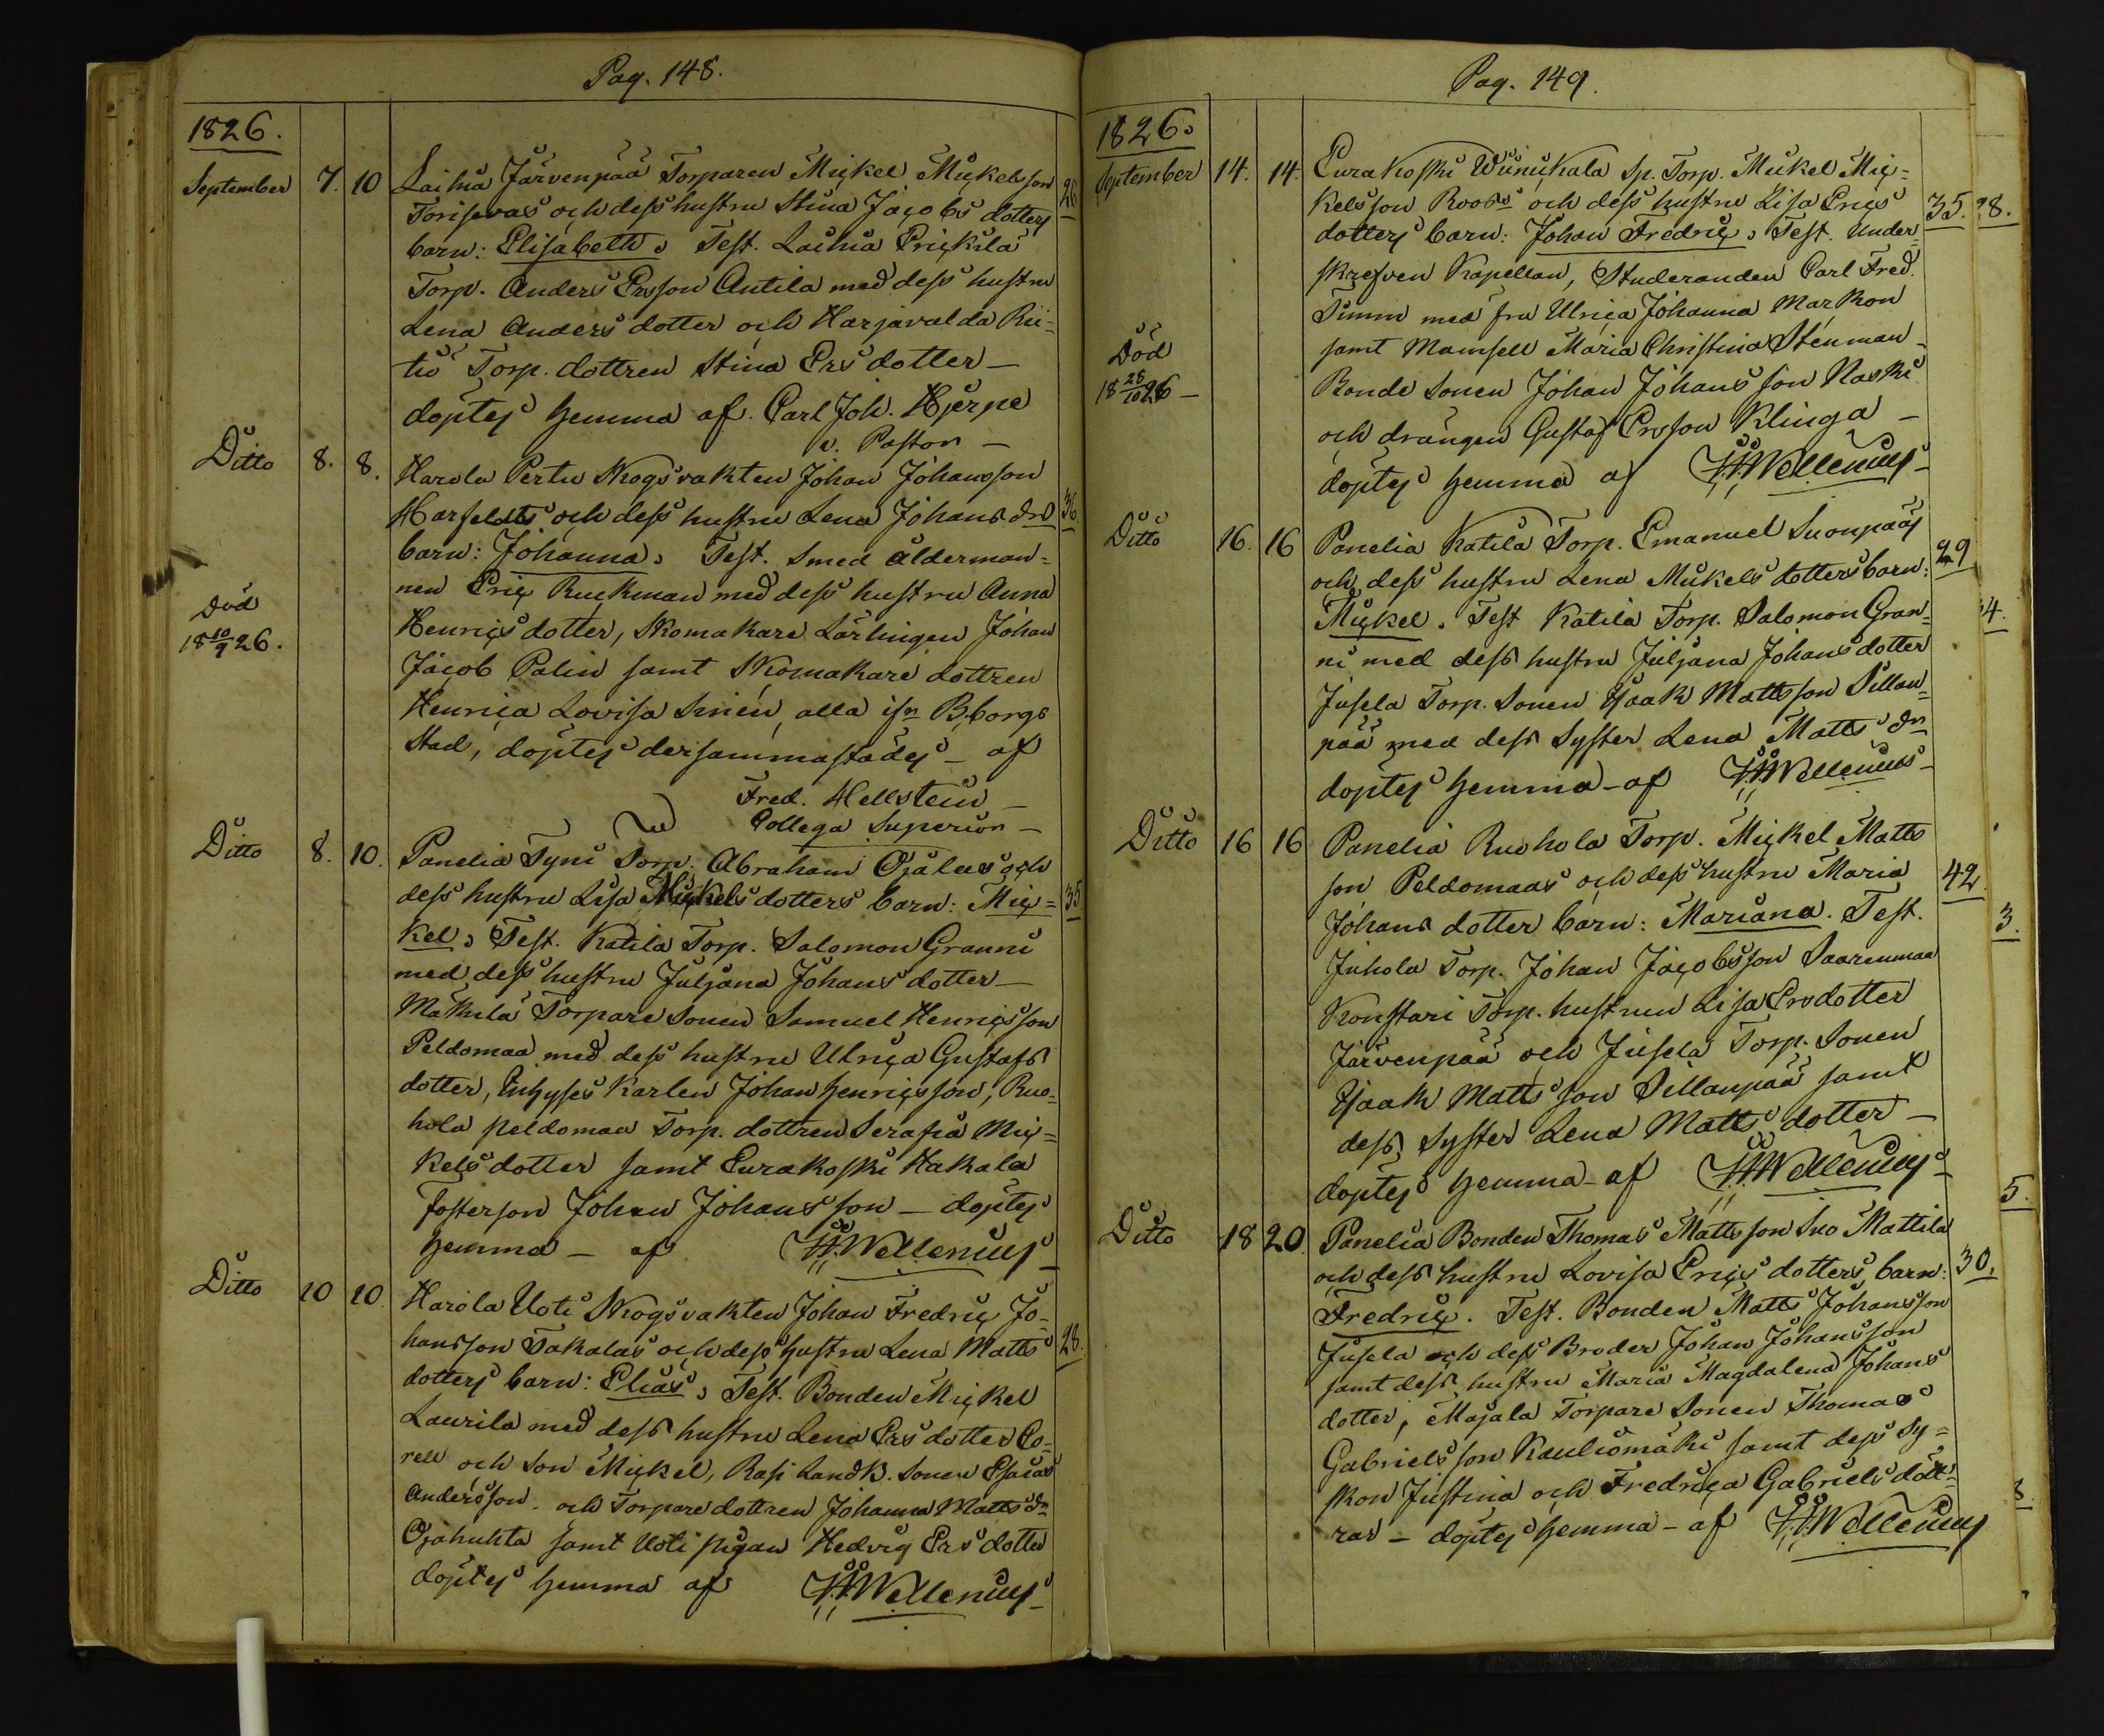 Pag. 148.
1826.
September 7. 10 Laihia Järvenpää Torparen Mickel Mickelsson
Torisevas och dess hustru Stina Jacobs dotters 26
barn: Elisabeth. Test. Laihia Prickilä
Torp. Anders Ersson Antila med dess hustru
Lena Anders dotter och Harjavalda Rii-
tiö Torp. dottren Stina Ers dotter –
döptes hemma af. Carl Joh. Hjerpe
v. Pastor –
Ditto 8. 8. Harola Pertu Skogsvakten Johan Johansson
Harfeldts och dess hustru Lena Johans dro 36
barn: Johanna. Test. Smed ålderman-
nen Eric Ruckman med dess hustru Anna
Död
18 10/9 26.
Henrics dotter, Skomakare Lärlingen Johan
Jacob Palin samt Skomakare dottren
Henrica Lovisa Sinén, alla ifrn B.borgs
Stad, döptes dersammastädes – af
Fred. Hellstein –
Collega Superior –
Ditto 8. 10. Panelia Tyni Torp. Abraham Ojalas och
dess hustru Lisa Mickels dotters barn: Mic- 35
kel. Test. Katila Torp. Salomon Granni
med dess hustru Juljana Johans dotter –
Mathila Torpare Sonen Samuel Henricsson
Peldomaa med dess hustru Ulrica Gustafs
dotter, Inhyses Karlen Johan Henricsson, Ruo-
hola peldomaa Torp. dottren Serafia Mic-
kels dotter samt Eurakoski Hakala
Fosterson Johan Johansson – döptes
hemma – af H.H. Wellenius –
Ditto 10 10 Harola Uoti Skogsvakten Johan Fredric Jo-
hansson Takalas och dess hustru Lena Matts 28.
dotters barn: Elias. Test. Bonden Mickel
Laurila med dess hustru Lena Ers dotter Co-
rell och Son Mickel, Rasi LandB. Sonen Esaias
Andersson. och Torpare dottren Johanna Matts dr
Ojahuhta samt Uoti pigan Hedvig Ers dotter
döptes hemma af H.H. Wellenius –
Pag. 149.
1826.
September 14. 14. Eurakoski Wiinikala Sp. Torp. Mickel Mic-
kelsson Roosrs och dess hustru Lisa Erics 35. 28.
dotters barn: Johan Fredric. Test. Under-
skrefven Kapellan, Studeranden Carl Fred.
Timm med fru Ulrica Johanna Markon
samt Mamsell Maria Christina Stenman –
Död
18 28/10 26 –
Bonde Sonen Johan Johansson Naski
och drängen Gustaf Ersson Klinga –
döptes hemma af H.H. Wellenius –
Ditto 16. 16 Panelia Katila Torp. Emanuel Suonpääs
och dess hustru Lena Mickels dotters barn: 29
Mickel. Test Katila Torp. Salomon Gran- 4.
ni med dess hustru Juljana Johans dotter
Jusela Torp. Sonen Isaak Mattsson Sillan-
pää med dess Syster Lena Matts dr
döptes hemma – af H.H. Wellenius –
Ditto 16 16 Panelia Ruohola Torp. Mickel Matts
son Peldomaas och dess hustru Maria 42
Johans dotter barn: Mariana. Test. 3.
Juhola Torp. Johan Jacobsson Saarenmaa
Konstari Torp. hustrun Lisa Ersdotter
Järvenpää och Jusela Torp. Sonen
Isaak Mattsson Sillanpää samt
dess Syster Lena Matts dotter –
döptes hemma – af H.H. Wellenius –
5.
Ditto 18 20. Panelia Bonden Thomas Mattsson Iso Mattila
och dess hustru Lovisa Erics dotters barn: 30.
Fredric. Test. Bonden Matts Johansson
Jusela och dess Broder Johan Johansson
samt dess hustru Maria Magdalena Johans
dotter, Majala Torpare Sonen Thomas
Gabrielsson Kauliomäki samt dess Sy-
skon Justina och Fredrica Gabriels dött-
rar – döptes hemma – af H.H. Wellenius
8.